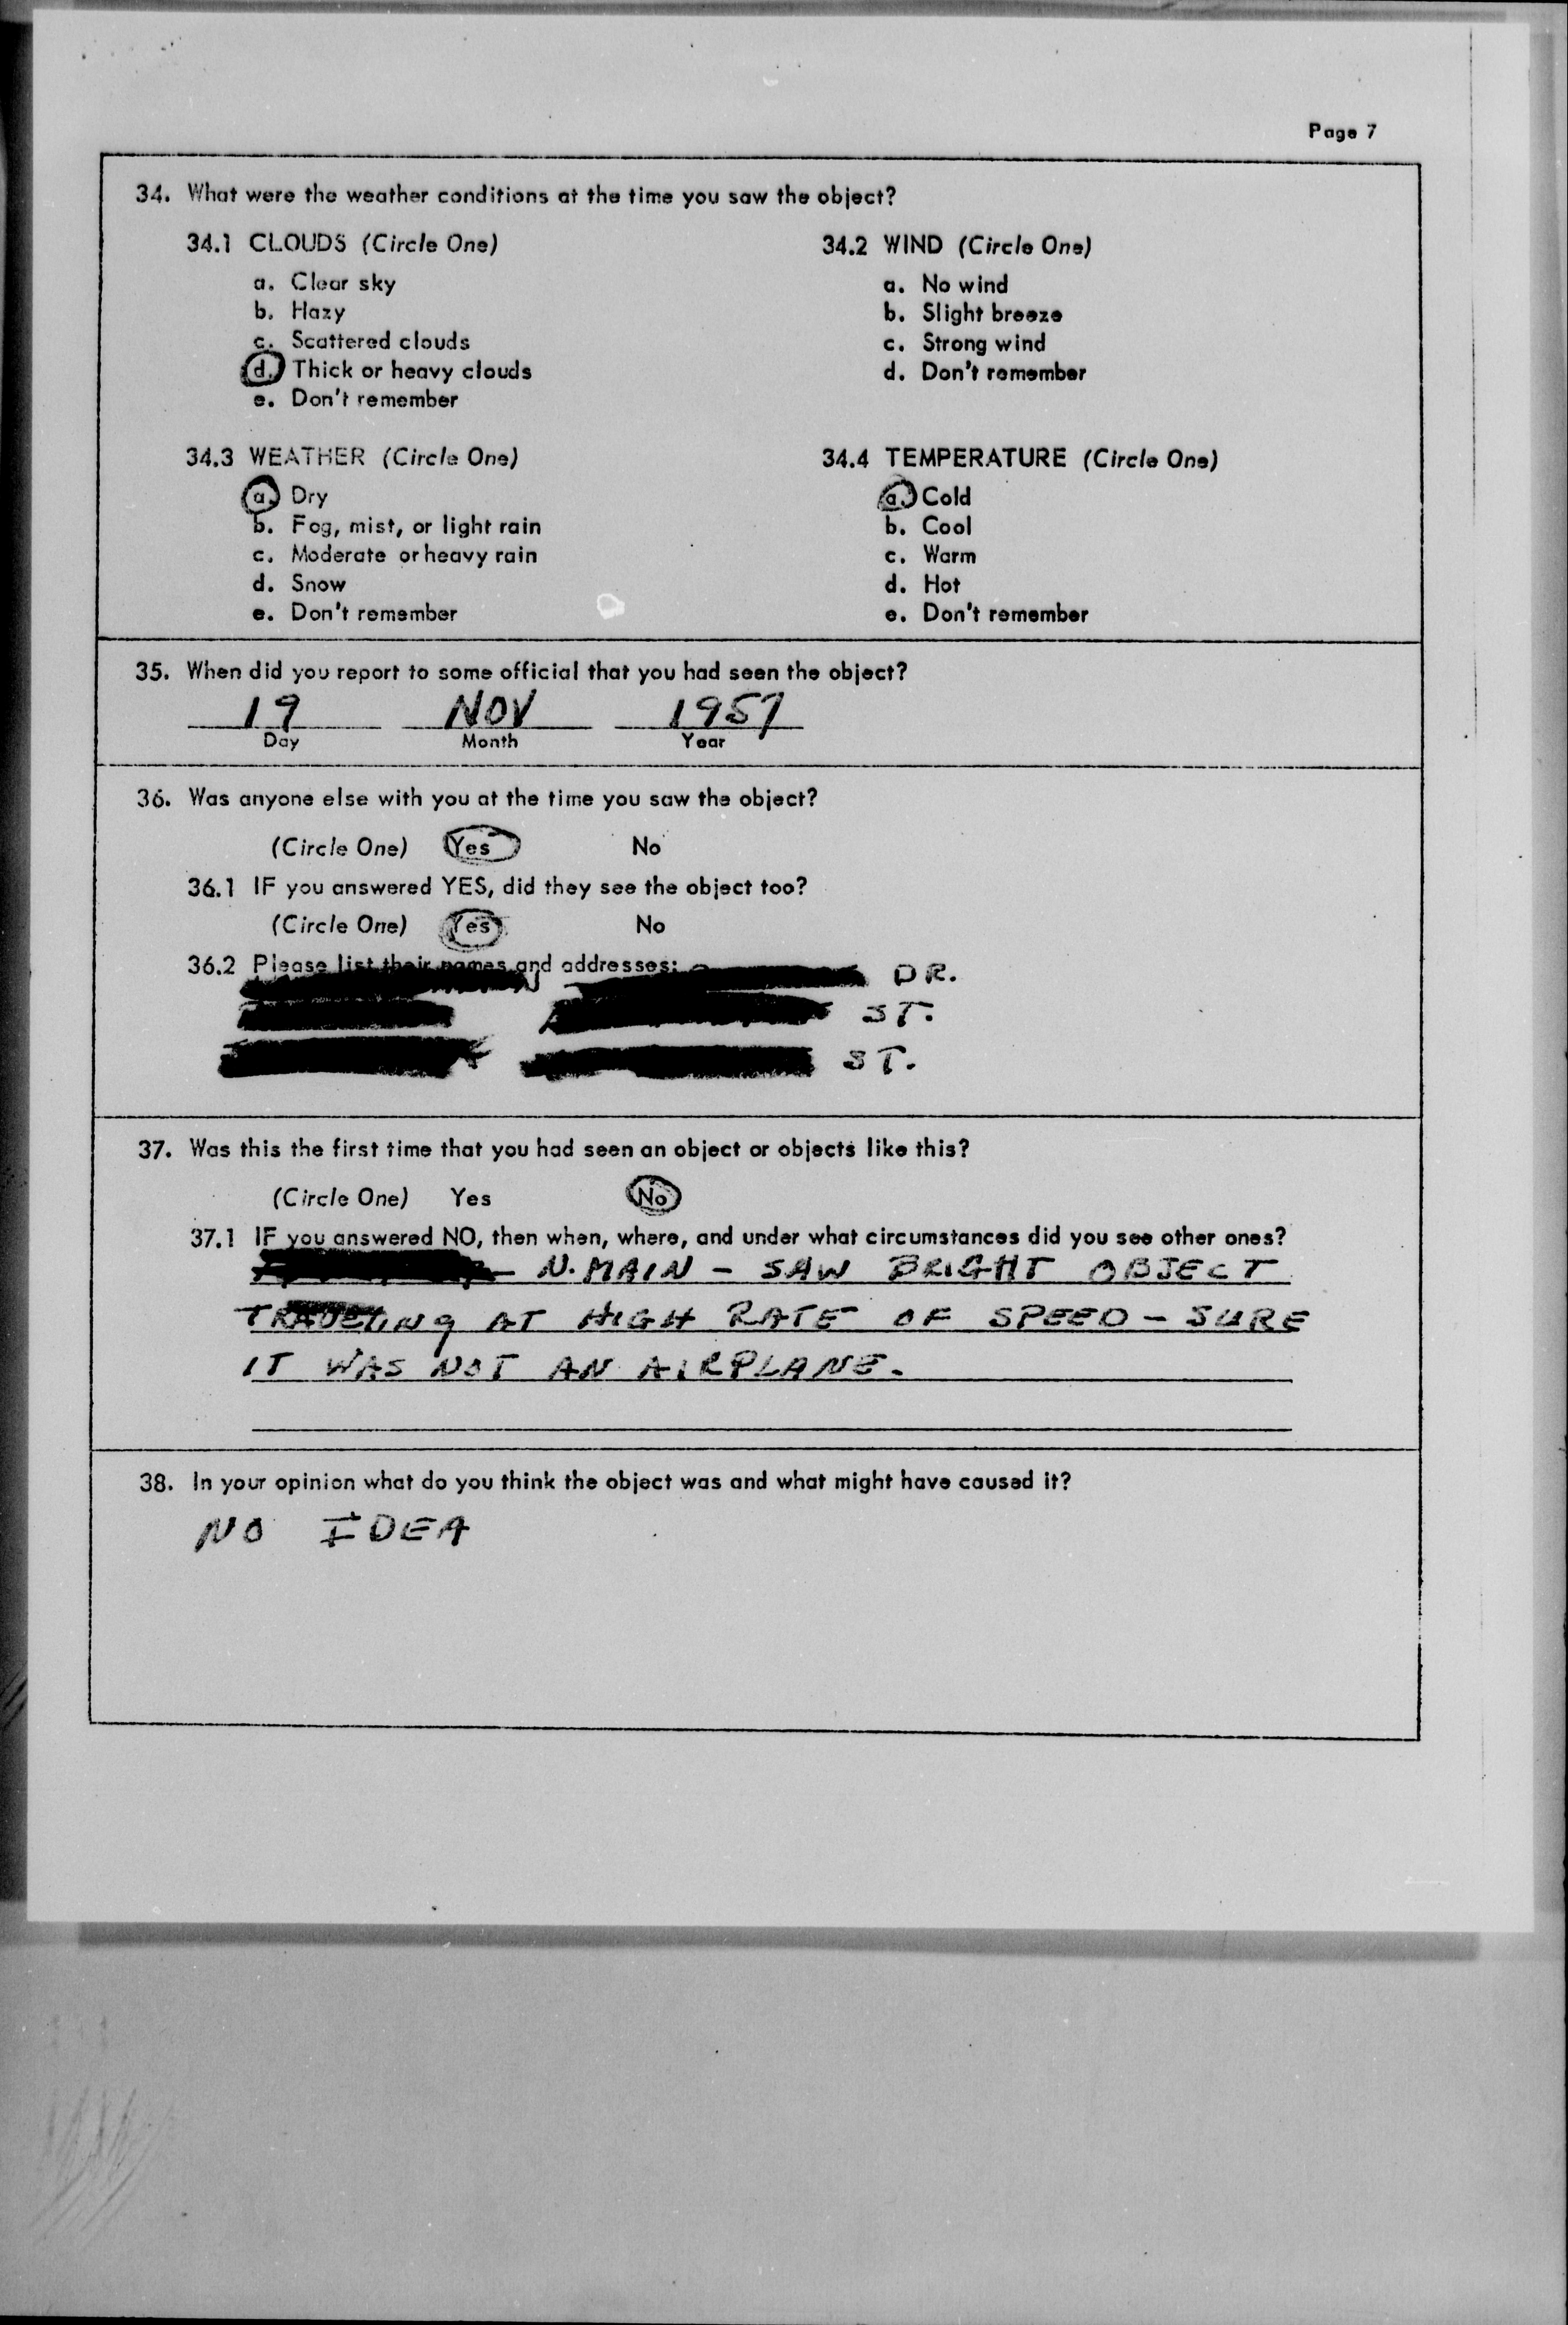 Page 7
34. What were the weather conditions at the time you saw the object?
34.1 CLOUDS (Circle One)
a. Clear sky
b. Hazy
c. Scattered clouds
d. Thick or heavy clouds
e. Don't remember
34.2 WIND (Circle One)
a. No wind
b. Slight breeze
c. Strong wind
d. Don't remember
34.3 WEATHER (Circle One)
a. Dry
b. Fog, mist, or light rain
c. Moderate or heavy rain
d. Snow
e. Don't remember
34.4 TEMPERATURE (Circle One)
a. Cold
b. Cool
c. Warm
d. Hot
e. Don't remember
35. When did you report to some official that you had seen the object?
19 NOV 1957
Day Month Year
36. Was anyone else with you at the time you saw the object?
(Circle One) Yes No
36.1 IF you answered YES, did they see the object too?
(Circle One) Yes No
36.2 Please list their names and addresses:
DR.
ST.
ST.
37. Was this the first time that you had seen an object or objects like this?
(Circle One) Yes No
37.1 IF you answered NO, then when, where, and under what circumstances did you see other ones?
N. MAIN - SAW BRIGHT OBJECT
TRAVELING AT HIGH RATE OF SPEED - SURE
IT WAS NOT AN AIRPLANE.
38. In your opinion what do you think the object was and what might have caused it?
NO IDEA